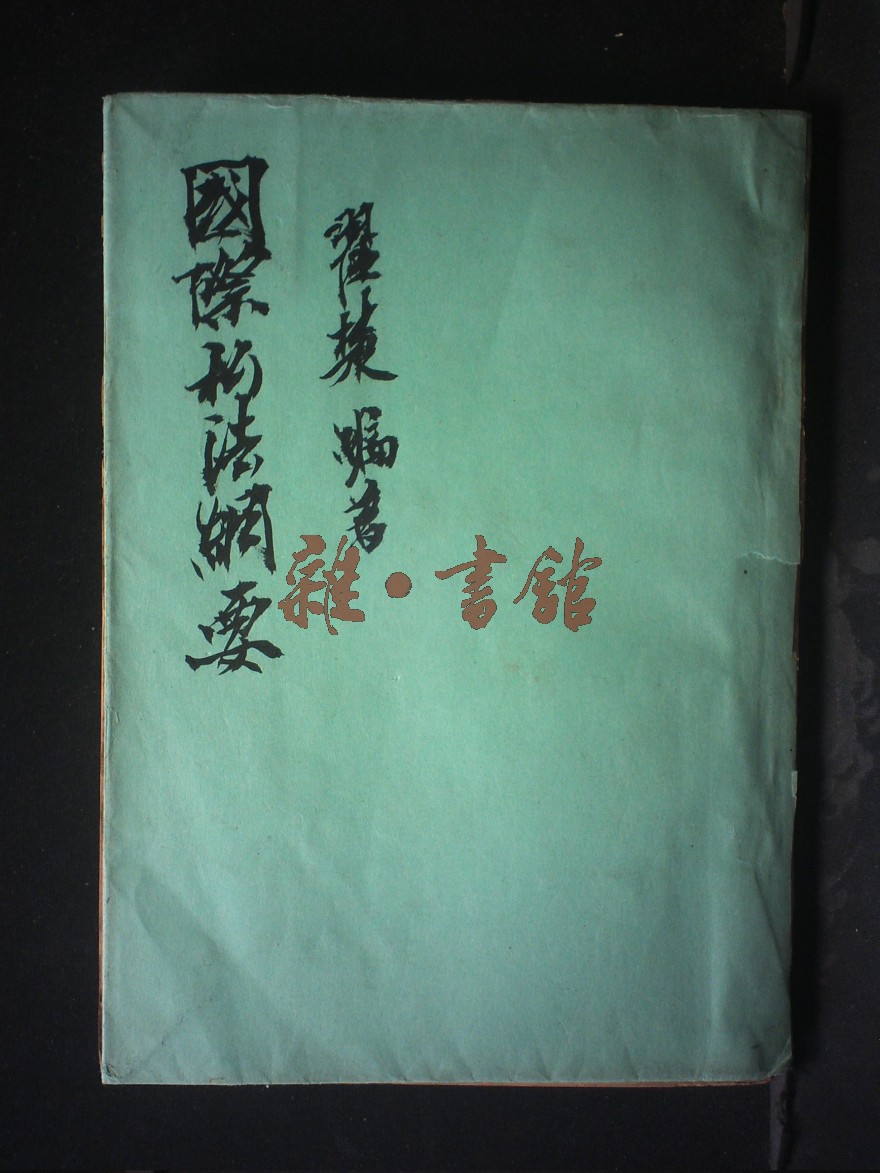 國際私法綱要
翟楚 編著
雜·書館